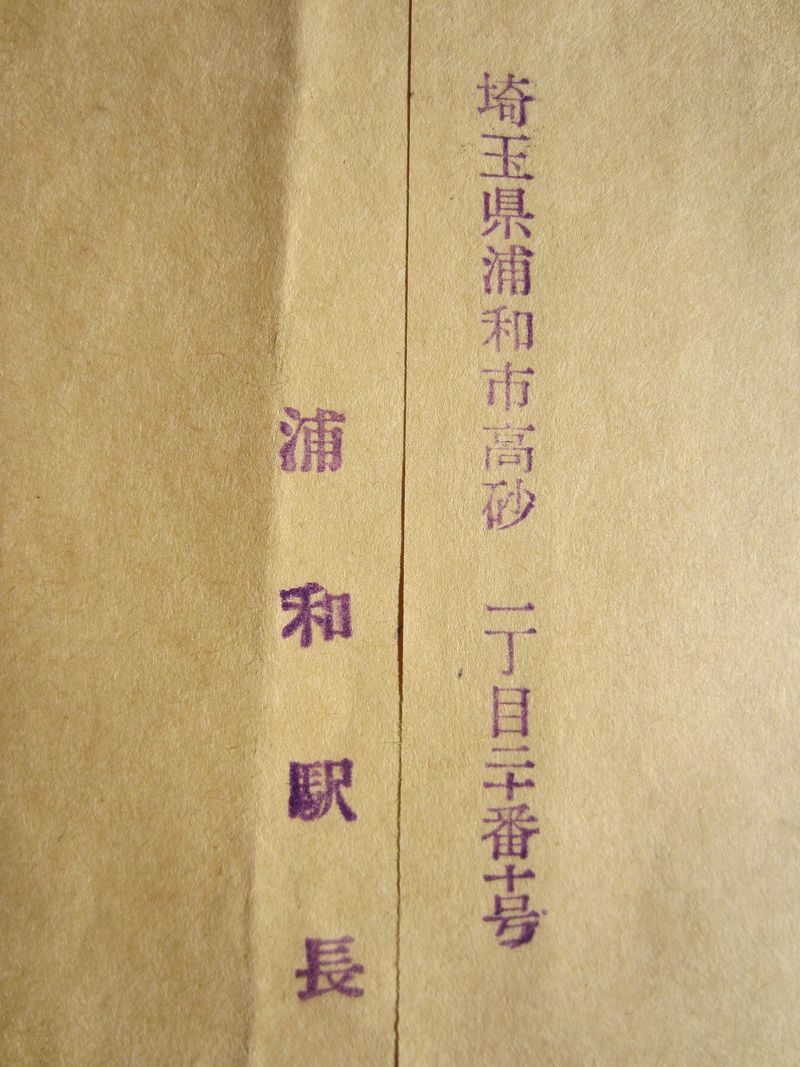 埼玉県浦和市高砂 一丁目二十番十号
浦和駅長